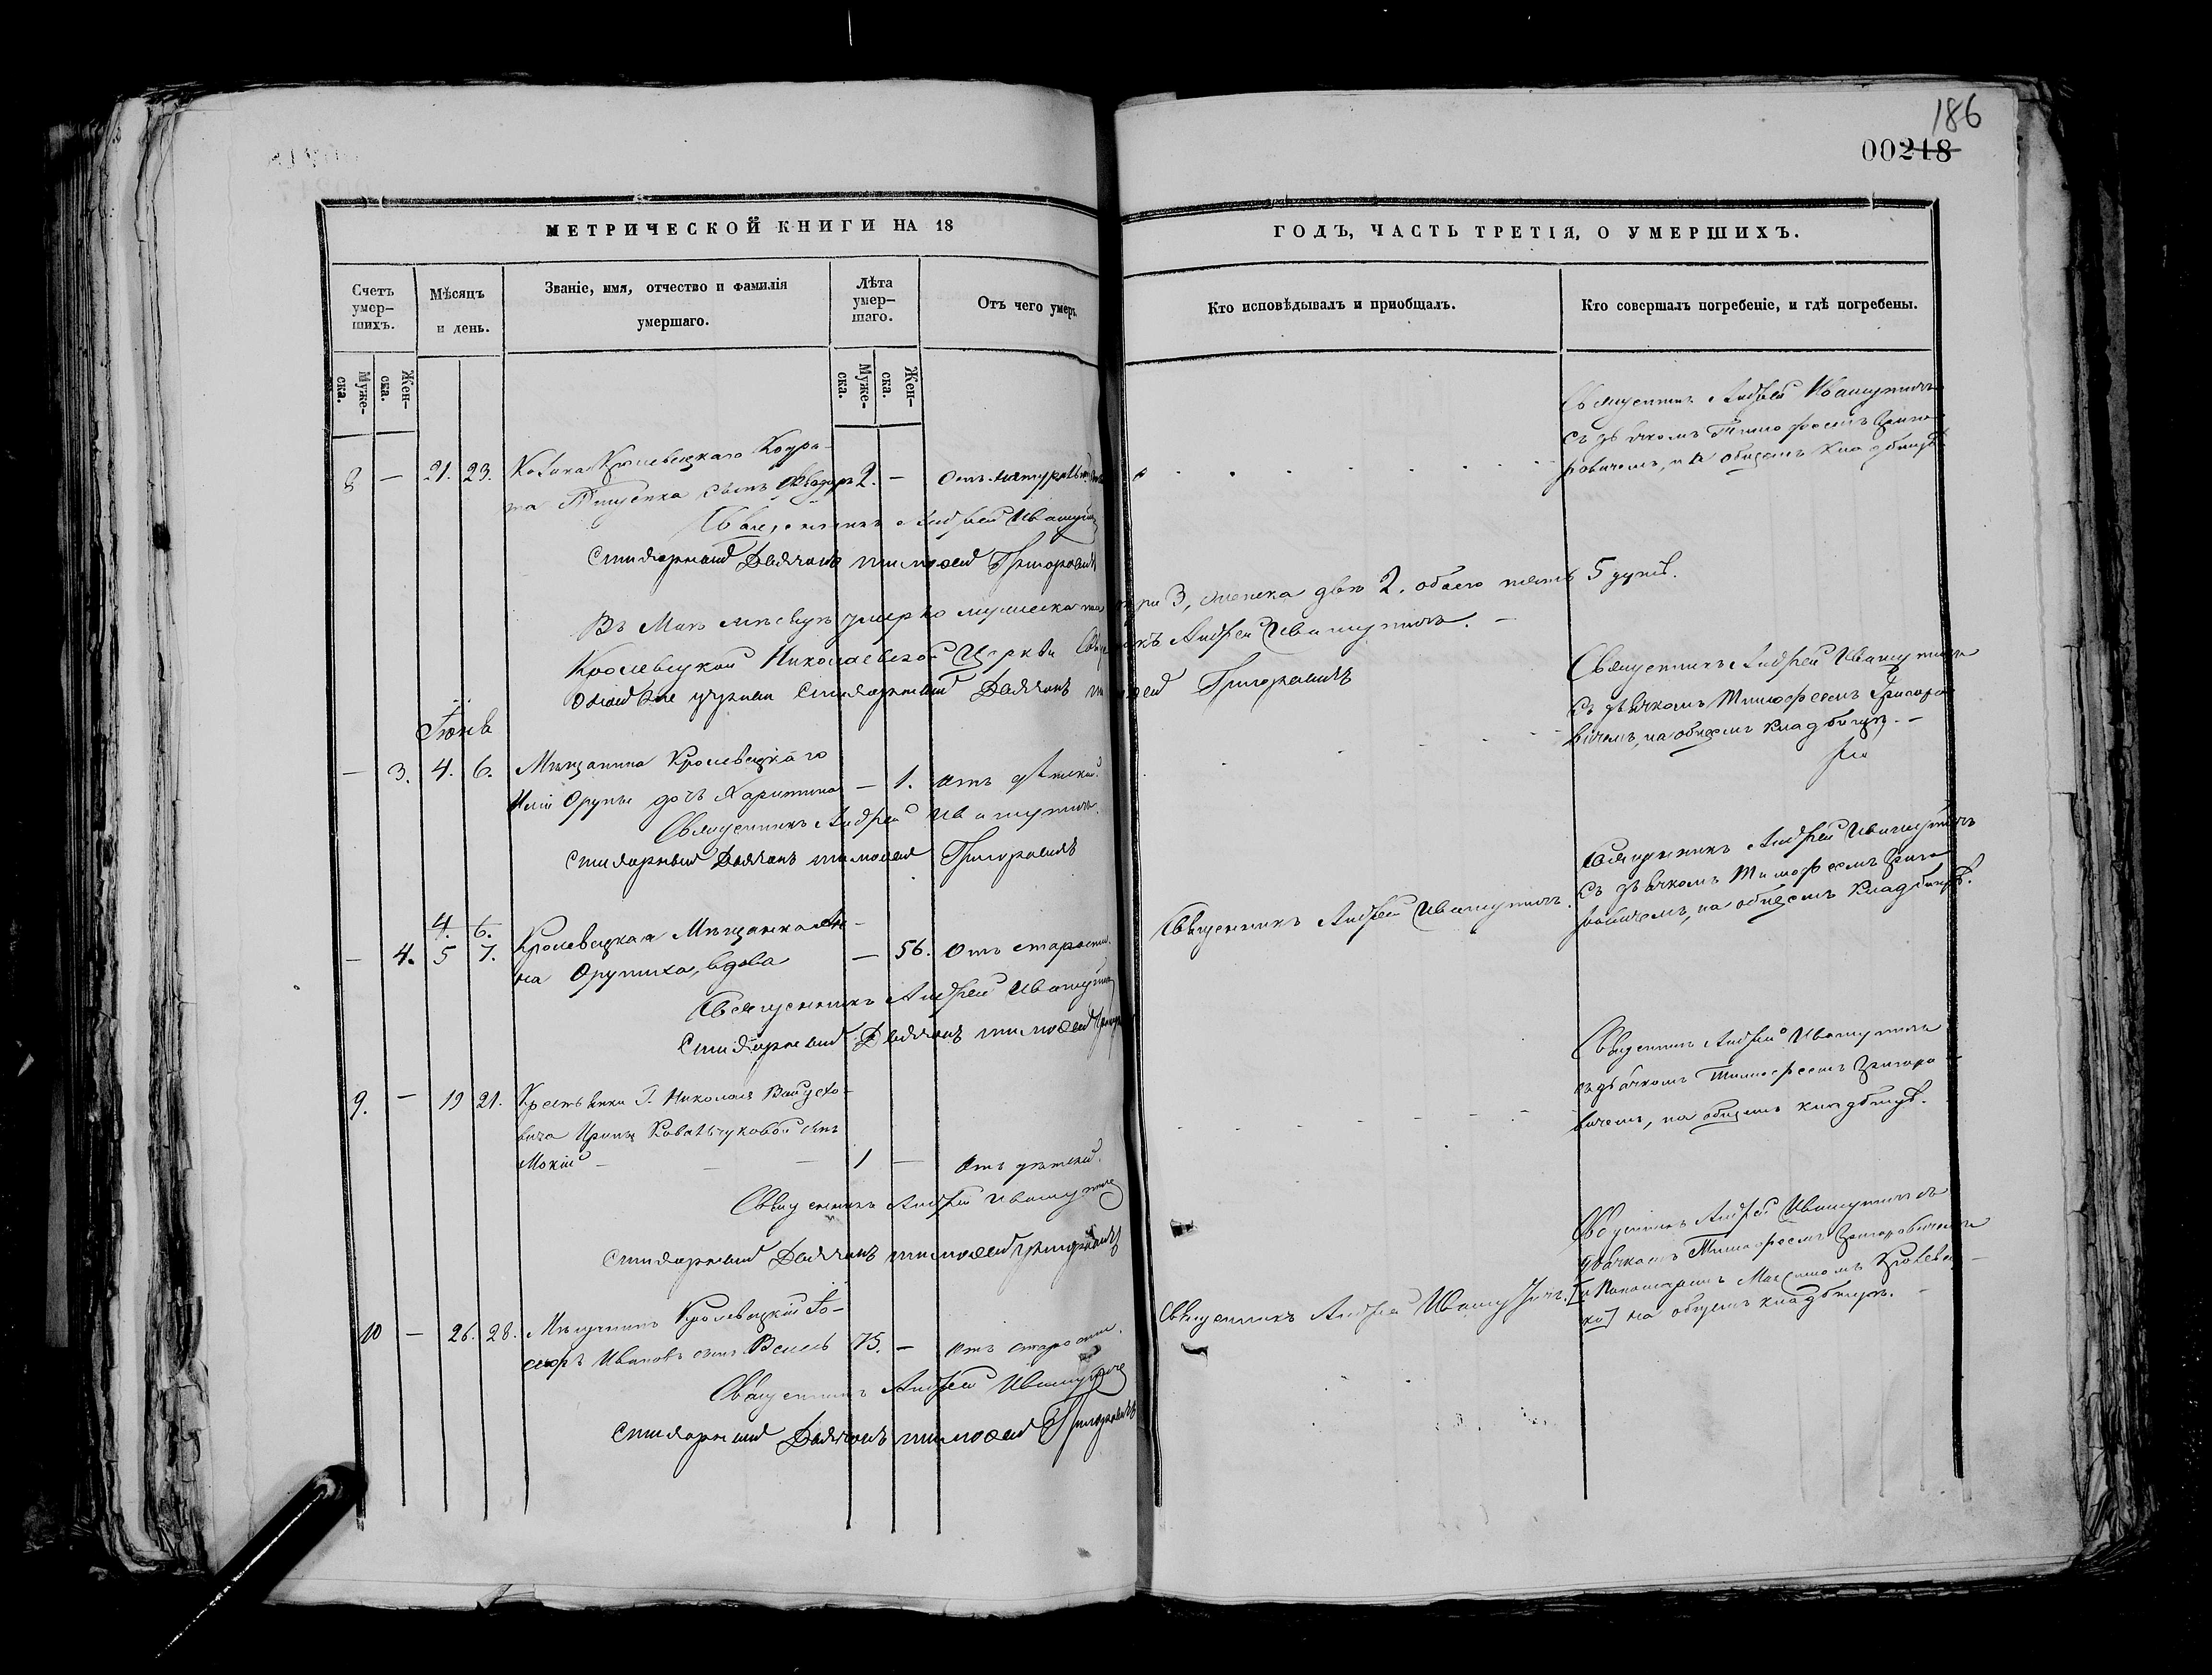 186
00218
МЕТРИЧЕСКОЙ КНИГИ НА 18
ГОДЪ, ЧАСТЬ ТРЕТІЯ, О УМЕРШИХЪ.
Счетъ умер-
шихъ.
Мѣсяцъ
и день.
Званіе, имя, отчество и фамилія
умершаго.
Лѣта
умер-
шаго.
Отъ чего умеръ.
Кто исповѣдывалъ и приобщалъ.
Кто совершалъ погребеніе, и гдѣ погребены.
Муже-
ска.
Жен-
ска.
Муже-
ска.
Жен-
ска.
8 — 21. 23. Козака Кролевецкаго Кодра-
та сынъ 2. —
Священникъ Андрей Ивашутичъ
съ дьячкомъ Тимофеемъ Григо-
ровичемъ, на общемъ кладбищѣ
Священникъ Андрей Ивашутичъ
Стихарный Дьячокъ Тимоѳей Григоровичъ
Въ Маѣ мѣсяцѣ умерло мужеска три 3, женска двѣ 2. обоего пять 5 душъ.
Кролевецкой Николаевской Церкви Священникъ Андрей Ивашутичъ. —
Стихарный Дьячокъ Тимоѳей Григоровичъ
Іюнь
— 3. 4. 6. Мѣщанина Кролевецкаго
дочь Харитина — 1. отъ дѣтской
Священникъ Андрей Ивашутичъ
съ дьячкомъ Тимофеемъ Григоро-
вичемъ, на общемъ кладбищѣ. —
Священникъ Андрей Ивашутичъ
Стихарный Дьячокъ Тимоѳей Григоровичъ
4. 6.
— 4. 5 7. Кролевецкая Мѣщанка Ан-
на вдова — 56. Отъ старости.
Священникъ Андрей Ивашутичъ.
Священникъ Андрей Ивашутичъ
съ дьячкомъ Тимофеемъ Григо-
ровичемъ, на общемъ кладбищѣ.
Священникъ Андрей Ивашутичъ
Стихарный Дьячокъ Тимоѳей
9. — 19 21. Крестьянки Г. Николая
вича Ирины Ковальчуковой сынъ
Мокій — — — 1 — Отъ дѣтской.
Священникъ Андрей Ивашутичъ
съ дьячкомъ Тимофеемъ Григоро-
вичемъ, на общемъ кладбищѣ.
Священникъ Андрей Ивашутичъ
Стихарный Дьячокъ Тимоѳей Григоровичъ
10 — 26. 28. Мѣщанинъ Кролевецкій Іо-
сифъ Ивановъ сынъ 75. — Отъ старости.
Священникъ Андрей Ивашутичъ.
Священникъ Андрей Ивашутичъ съ
дьячкомъ Тимофеемъ Григоровичемъ
[и Пономаремъ Максимомъ
] на общемъ кладбищѣ. —
Священникъ Андрей Ивашутичъ
Стихарный Дьячокъ Тимоѳей Григоровичъ